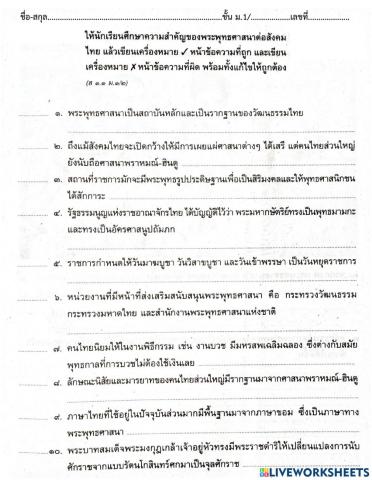 ชื่อ-สกุล..........ชั้น ม.1/..........เลขที่..........
ให้นักเรียนศึกษาความสำคัญของพระพุทธศาสนาต่อสังคม
ไทย แล้วเขียนเครื่องหมาย ✓ หน้าข้อความที่ถูก และเขียน
เครื่องหมาย ✗ หน้าข้อความที่ผิด พร้อมทั้งแก้ไขให้ถูกต้อง
(ส ๑.๑ ม.๑/๒)
๑. พระพุทธศาสนาเป็นสถาบันหลักและเป็นรากฐานของวัฒนธรรมไทย
๒. ถึงแม้สังคมไทยจะเปิดกว้างให้มีการเผยแผ่ศาสนาต่างๆ ได้เสรี แต่คนไทยส่วนใหญ่
ยังนับถือศาสนาพราหมณ์-ฮินดู
๓. สถานที่ราชการมักจะมีพระพุทธรูปประดิษฐานเพื่อเป็นสิริมงคลและให้พุทธศาสนิกชน
ได้สักการะ
๔. รัฐธรรมนูญแห่งราชอาณาจักรไทย ได้บัญญัติไว้ว่า พระมหากษัตริย์ทรงเป็นพุทธมามกะ
และทรงเป็นอัครศาสนูปถัมภก
๕. ราชการกำหนดให้วันมาฆบูชา วันวิสาขบูชา และวันเข้าพรรษา เป็นวันหยุดราชการ
๖. หน่วยงานที่มีหน้าที่ส่งเสริมสนับสนุนพระพุทธศาสนา คือ กระทรวงวัฒนธรรม
กระทรวงมหาดไทย และสำนักงานพระพุทธศาสนาแห่งชาติ
๗. คนไทยนิยมให้ในงานพิธีกรรม เช่น งานบวช มีมหรสพเฉลิมฉลอง ซึ่งต่างกับสมัย
พุทธกาลที่การบวชไม่ต้องใช้เงินเลย
๘. ลักษณะนิสัยและมารยาทของคนไทยส่วนใหญ่มีรากฐานมาจากศาสนาพราหมณ์-ฮินดู
๙. ภาษาไทยที่ใช้อยู่ในปัจจุบันส่วนมากมีพื้นฐานมาจากภาษาขอม ซึ่งเป็นภาษาทาง
พระพุทธศาสนา
๑๐. พระบาทสมเด็จพระมงกุฎเกล้าเจ้าอยู่หัวทรงมีพระราชดำริให้เปลี่ยนแปลงการนับ
ศักราชจากแบบรัตนโกสินทร์ศกมาเป็นจุลศักราช
LIVEWORKSHEETS